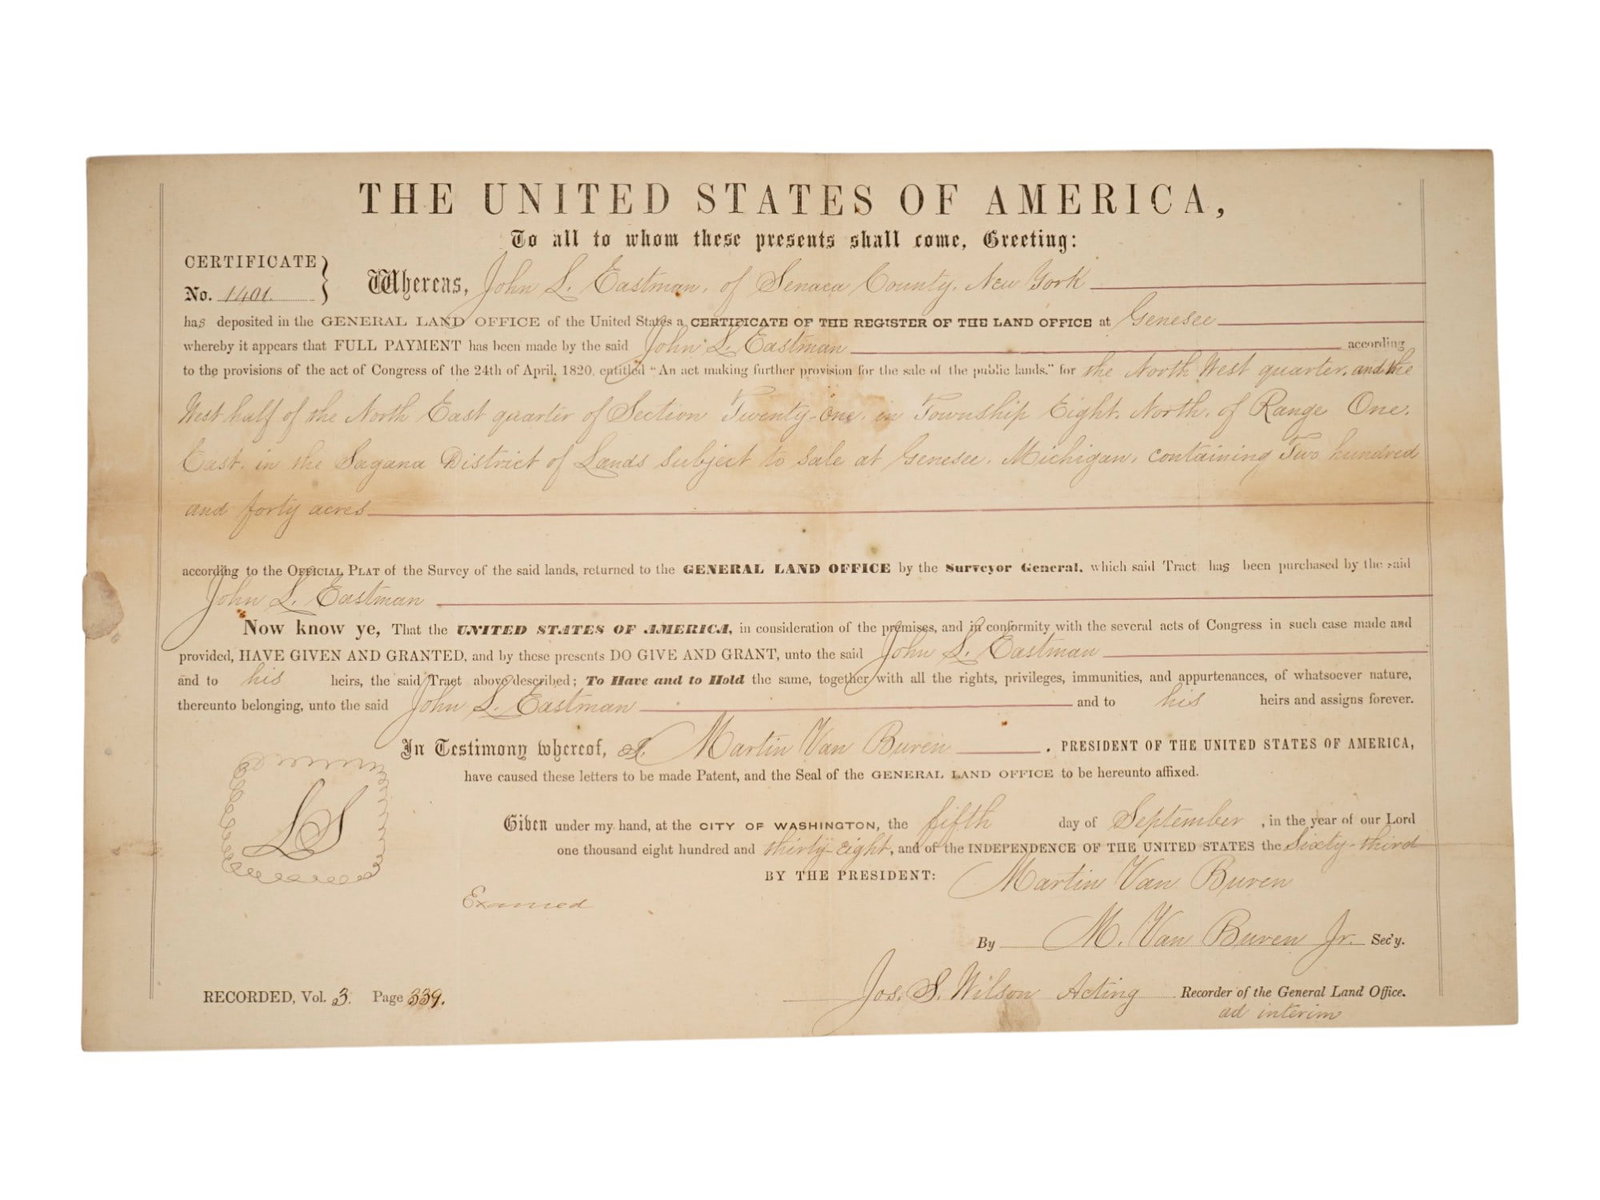 THE UNITED STATES OF AMERICA,
To all to whom these presents shall come, Greeting:
CERTIFICATE
No. 1401.
Whereas, John L. Eastman, of Senaca County, New York
has deposited in the GENERAL LAND OFFICE of the United States a CERTIFICATE OF THE REGISTER OF THE LAND OFFICE at Genesee
whereby it appears that FULL PAYMENT has been made by the said John L. Eastman according
to the provisions of the act of Congress of the 24th of April, 1820, entitled "An act making further provision for the sale of the public lands." for the North West quarter, and the
West half of the North East quarter of Section Twenty-One, in Township Eight, North, of Range One,
East, in the Sagana District of Lands subject to sale at Genesee, Michigan, containing Two hundred
and forty acres
according to the OFFICIAL PLAT of the Survey of the said lands, returned to the GENERAL LAND OFFICE by the Surveyor General, which said Tract has been purchased by the said
John L. Eastman
Now know ye, That the UNITED STATES OF AMERICA, in consideration of the premises, and in conformity with the several acts of Congress in such case made and
provided, HAVE GIVEN AND GRANTED, and by these presents DO GIVE AND GRANT, unto the said John L. Eastman
and to his heirs, the said Tract above described; To Have and to Hold the same, together with all the rights, privileges, immunities, and appurtenances, of whatsoever nature,
thereunto belonging, unto the said John L. Eastman and to his heirs and assigns forever.
In Testimony whereof, I, Martin Van Buren , PRESIDENT OF THE UNITED STATES OF AMERICA,
have caused these letters to be made Patent, and the Seal of the GENERAL LAND OFFICE to be hereunto affixed.
LS
Given under my hand, at the CITY OF WASHINGTON, the fifth day of September , in the year of our Lord
one thousand eight hundred and thirty-eight, and of the INDEPENDENCE OF THE UNITED STATES the Sixty-third
BY THE PRESIDENT: Martin Van Buren
By M. Van Buren Jr. Sec'y.
Jos. S. Wilson Acting Recorder of the General Land Office.
ad interim
RECORDED, Vol. 3. Page 339.